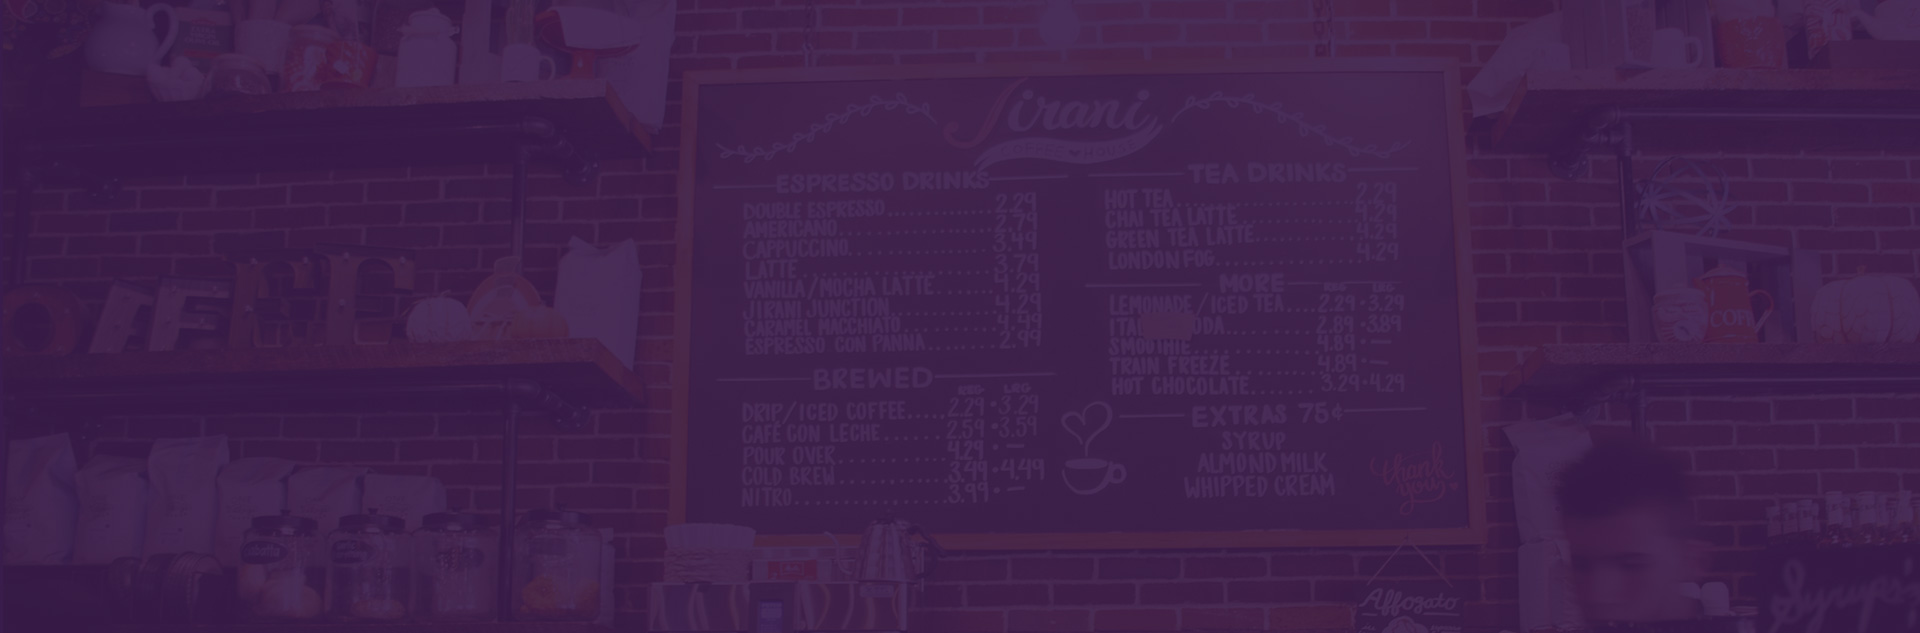 Jirani
COFFEE HOUSE
ESPRESSO DRINKS
DOUBLE ESPRESSO 2.29
AMERICANO 2.79
CAPPUCCINO 3.49
LATTE 3.79
VANILLA/MOCHA LATTE 4.29
JIRANI JUNCTION 4.29
CARAMEL MACCHIATO
ESPRESSO CON PANNA 2.99
BREWED
REG LRG
DRIP/ICED COFFEE 2.29 • 3.29
CAFÉ CON LECHE 2.59 • 3.59
POUR OVER 4.29 • —
COLD BREW 3.49 • 4.49
NITRO 3.99 • —
TEA DRINKS
HOT TEA 2.29
CHAI TEA LATTE 4.29
GREEN TEA LATTE 4.29
LONDON FOG 4.29
MORE
REG LRG
LEMONADE/ICED TEA 2.29 • 3.29
2.89 • 3.89
SMOOTHIE 4.89 • —
TRAIN FREEZE 4.89 • —
HOT CHOCOLATE 3.29 • 4.29
EXTRAS 75¢
SYRUP
ALMOND MILK
WHIPPED CREAM
thank
you
Affogato
Syrups